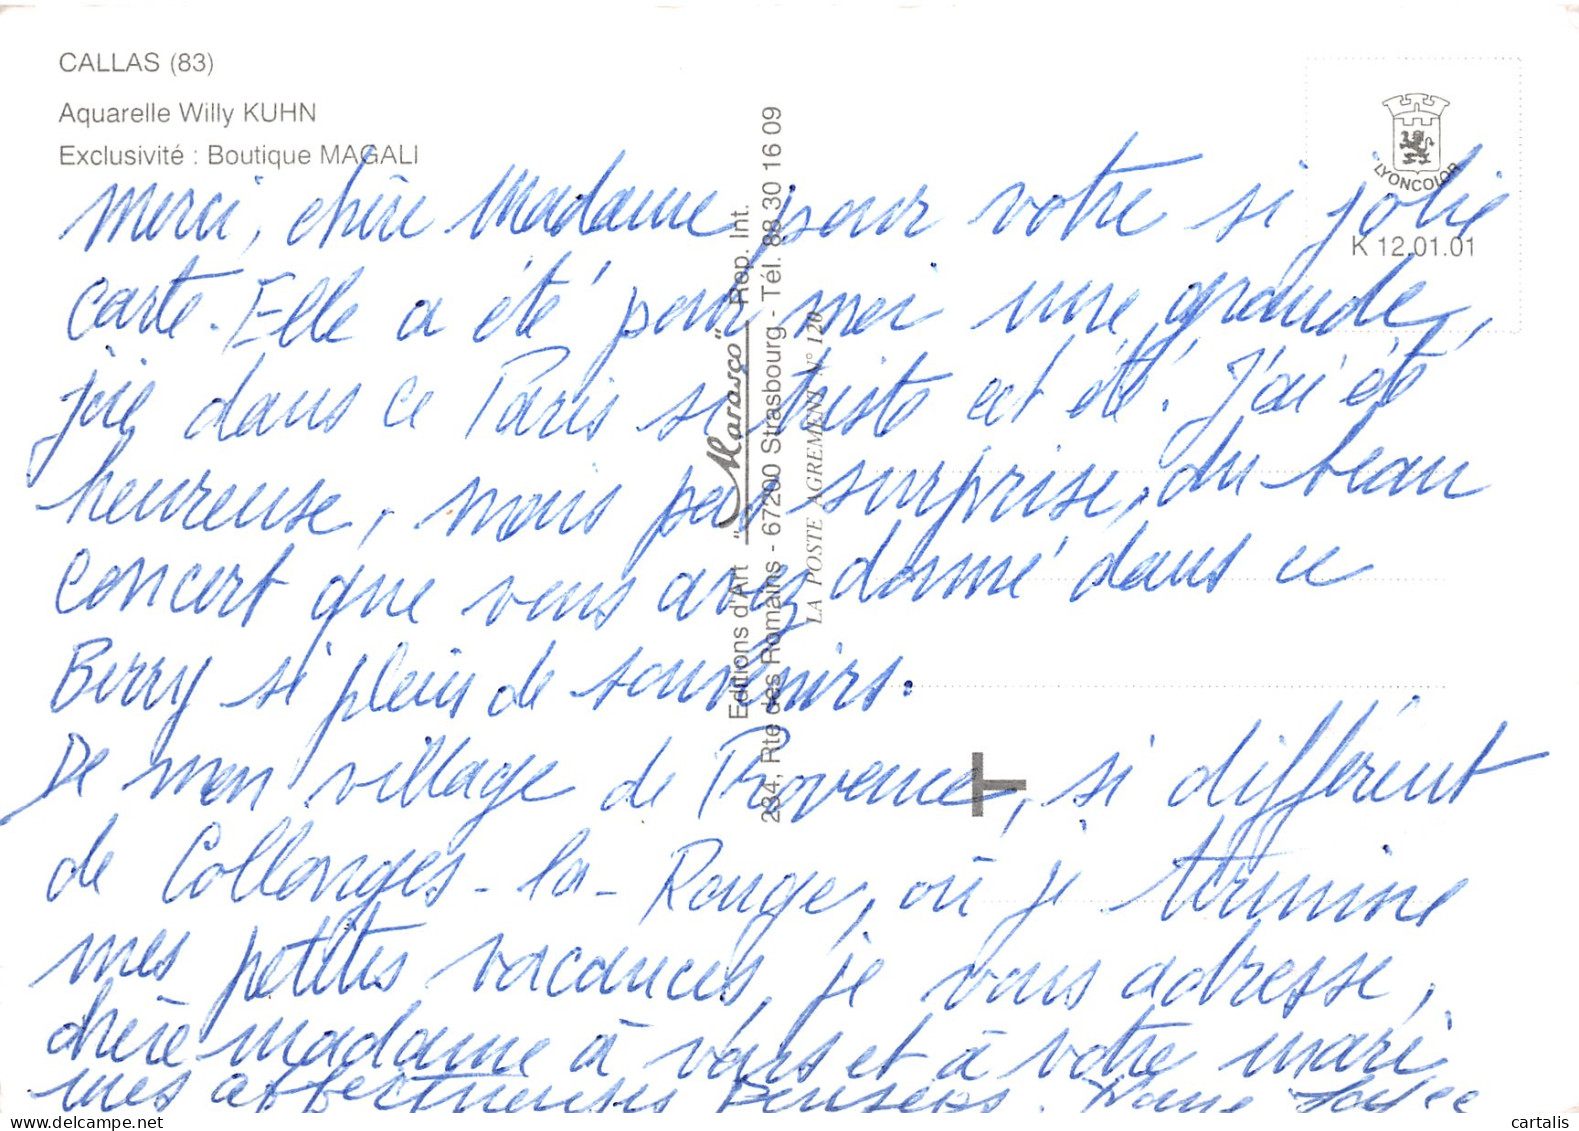 CALLAS (83)
Aquarelle Willy KUHN
Exclusivité : Boutique MAGALI
LYONCOLOR
K 12.01.01
Editions d'Art "Marasco" - Rep. Int.
234, Rte des Romains - 67200 Strasbourg - Tél. 88 30 16 09
LA POSTE AGREMENT N° 120
T
Merci, chère Madame, pour votre si jolie
carte. Elle a été pour moi une grande
joie dans ce Paris si triste cet été. J'ai été
heureuse, mais pas surprise, du beau
concert que vous avez donné dans ce
Berry si plein de souvenirs.
De mon village de Provence, si différent
de Collonges-la-Rouge, où je termine
mes petites vacances, je vous adresse,
chère madame à vous et à votre mari
mes affectueuses pensées.
cartalis